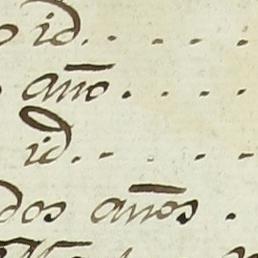 o id. . . . .
año. . . .
id. . . . .
dos años .